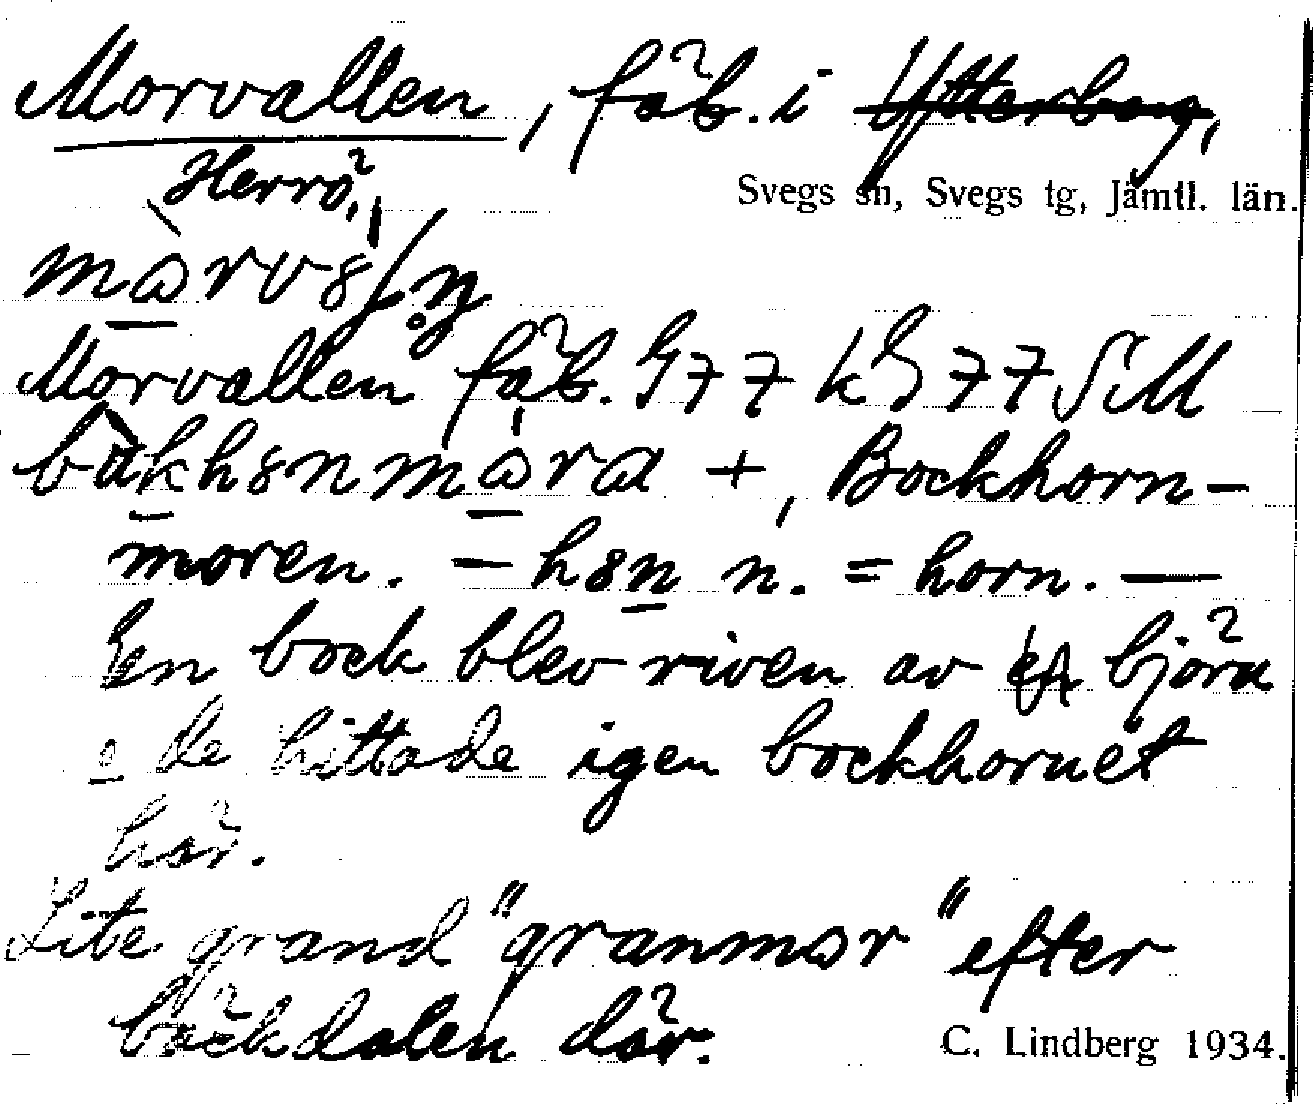 Morvallen, fäb. i Ytterberg,
Herrö,
Svegs sn, Svegs tg, Jämtl. län.
Morvallen fäb. G 77 kG 77 SM
+, Bockhorn-
moren. – n. = horn. —
En bock blev riven av björn
o de hittade igen bockhornet
här.
Lite grand "granmor" efter
bäckdalen där.
C. Lindberg 1934.